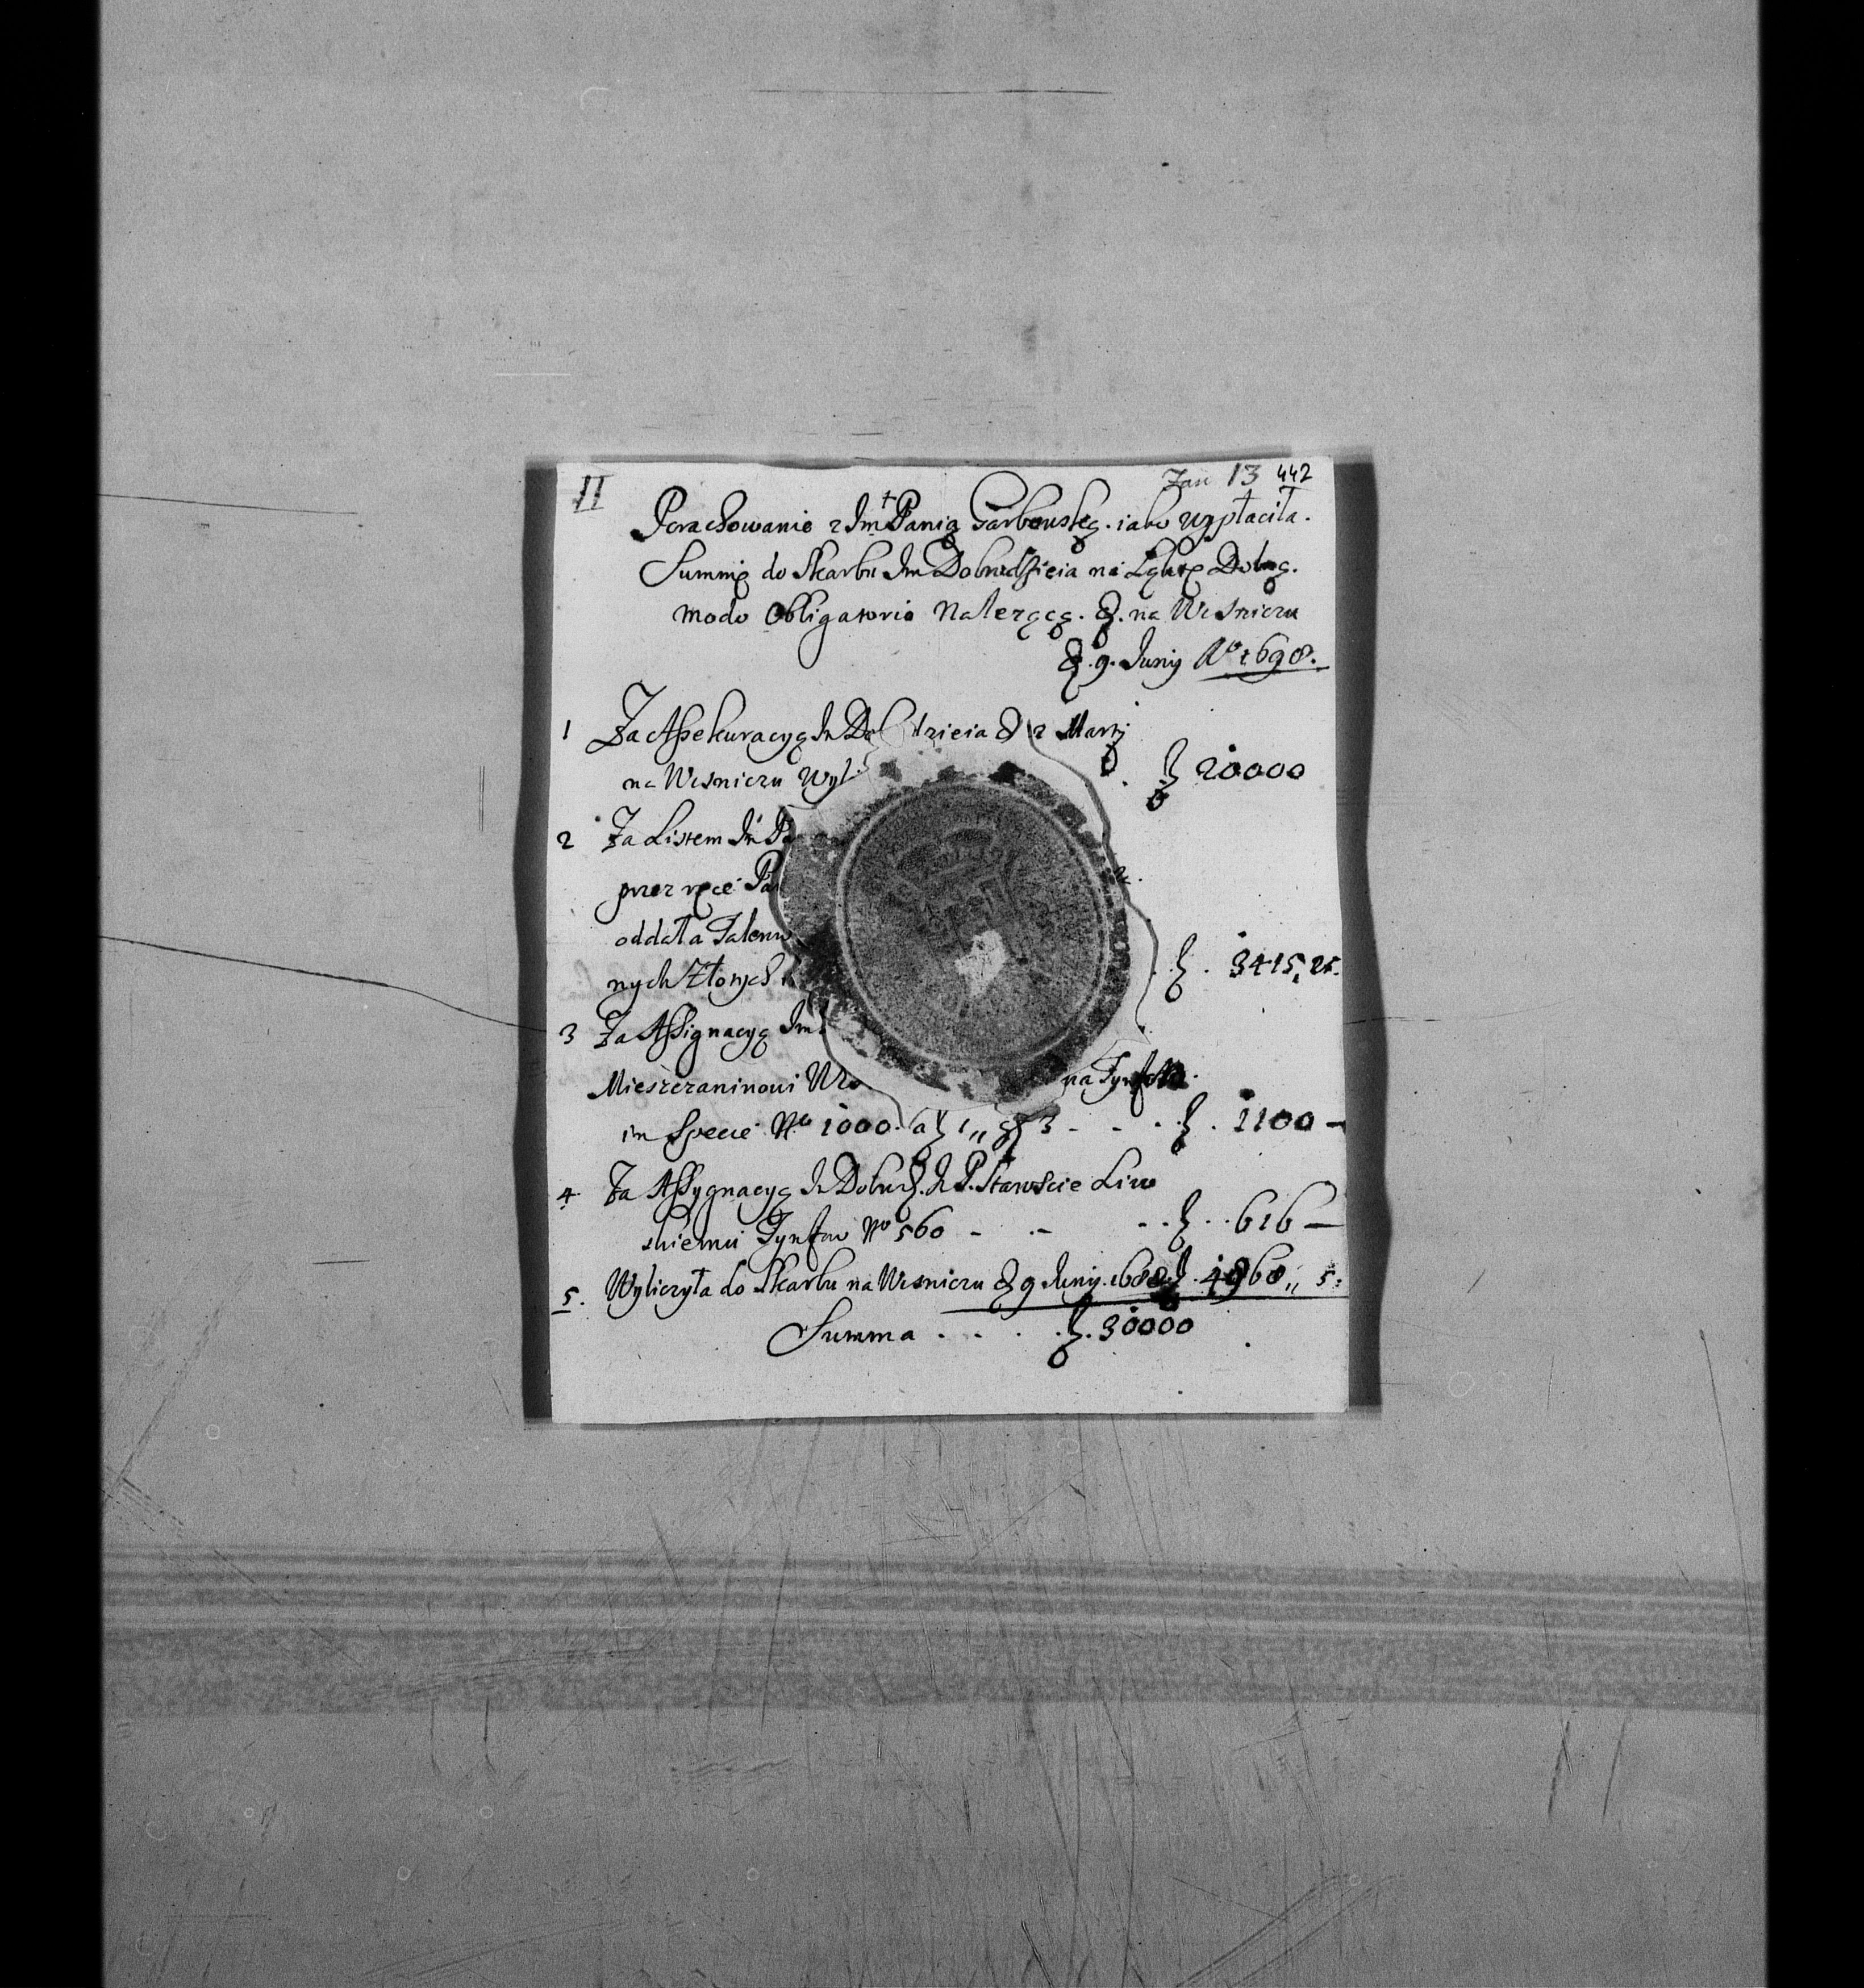 II
Jan 13 442
Porachowanie z Jm Panią Garbowską. iako wypłaciła.
Summę do Skarbu Jm Dobrodzieia na
modo obligatorio Należącą. D. na Wisniczu
D. 9. Junij Aᵒ 1698.
1 Za Assekuracyą Jm Do dzieia D 2 Martij
na Wisniczu Wyl 20000
2 Za Listem Jm P
przez ręce Pa
oddała Talerow
nych Złotych 3415,, 25.
3 Za Assignacyą Jm
Mieszczaninowi na
in Specie Nᵒ 1000. a 1,, gr 3 - - . 1100 —
4. Za Assygnacyą Jm Dobrd. Jm P. Staroscie Liw
skiemu Tynfow Nᵒ 560 - - - . . 616 —
5. Wyliczyła do Skarbu na Wisniczu D 9 Junij. 4868,, 5.
Summa . . . . 30000